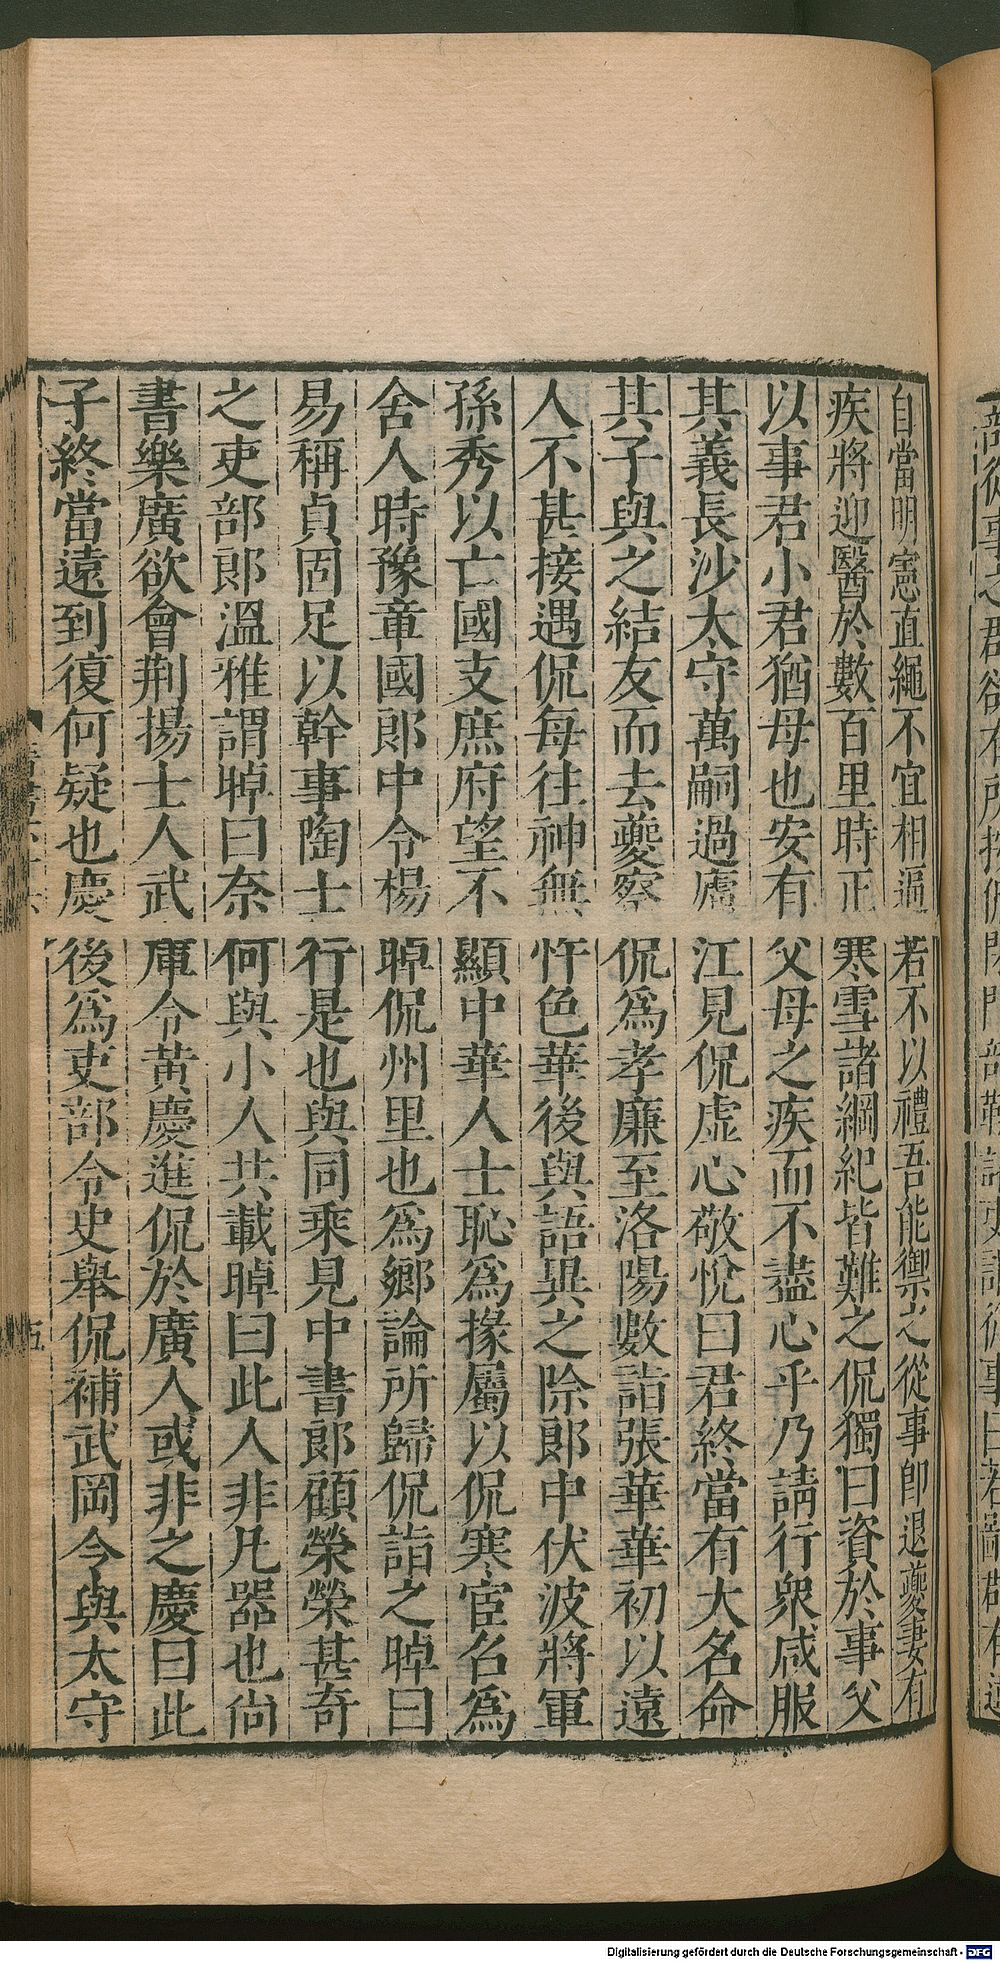 自當明憲直繩不宜相逼若不以禮吾能禦之從事卽退夔妻有
疾將迎醫於數百里時正寒雪諸綱紀皆難之侃獨曰資於事父
以事君小君猶母也安有父母之疾而不盡心乎乃請行衆咸服
其義長沙太守萬嗣過廬江見侃虛心敬悅曰君終當有大名命
其子與之結友而去夔察侃爲孝廉至洛陽數詣張華華初以遠
人不甚接遇侃每往神無忤色華後與語異之除郞中伏波將軍
孫秀以亡國支庶府望不顯中華人士恥爲掾屬以侃寒宦名爲
舍人時豫章國郞中令楊晫侃州里也爲鄕論所歸侃詣之晫曰
易稱貞固足以幹事陶士行是也與同乘見中書郞顧榮榮甚奇
之吏部郞溫雅謂晫曰奈何與小人共載晫曰此人非凡器也尙
書樂廣欲會荆揚士人武庫令黃慶進侃於廣人或非之慶曰此
子終當遠到復何疑也慶後爲吏部令史舉侃補武岡令與太守
五
Digitalisierung gefördert durch die Deutsche Forschungsgemeinschaft - DFG